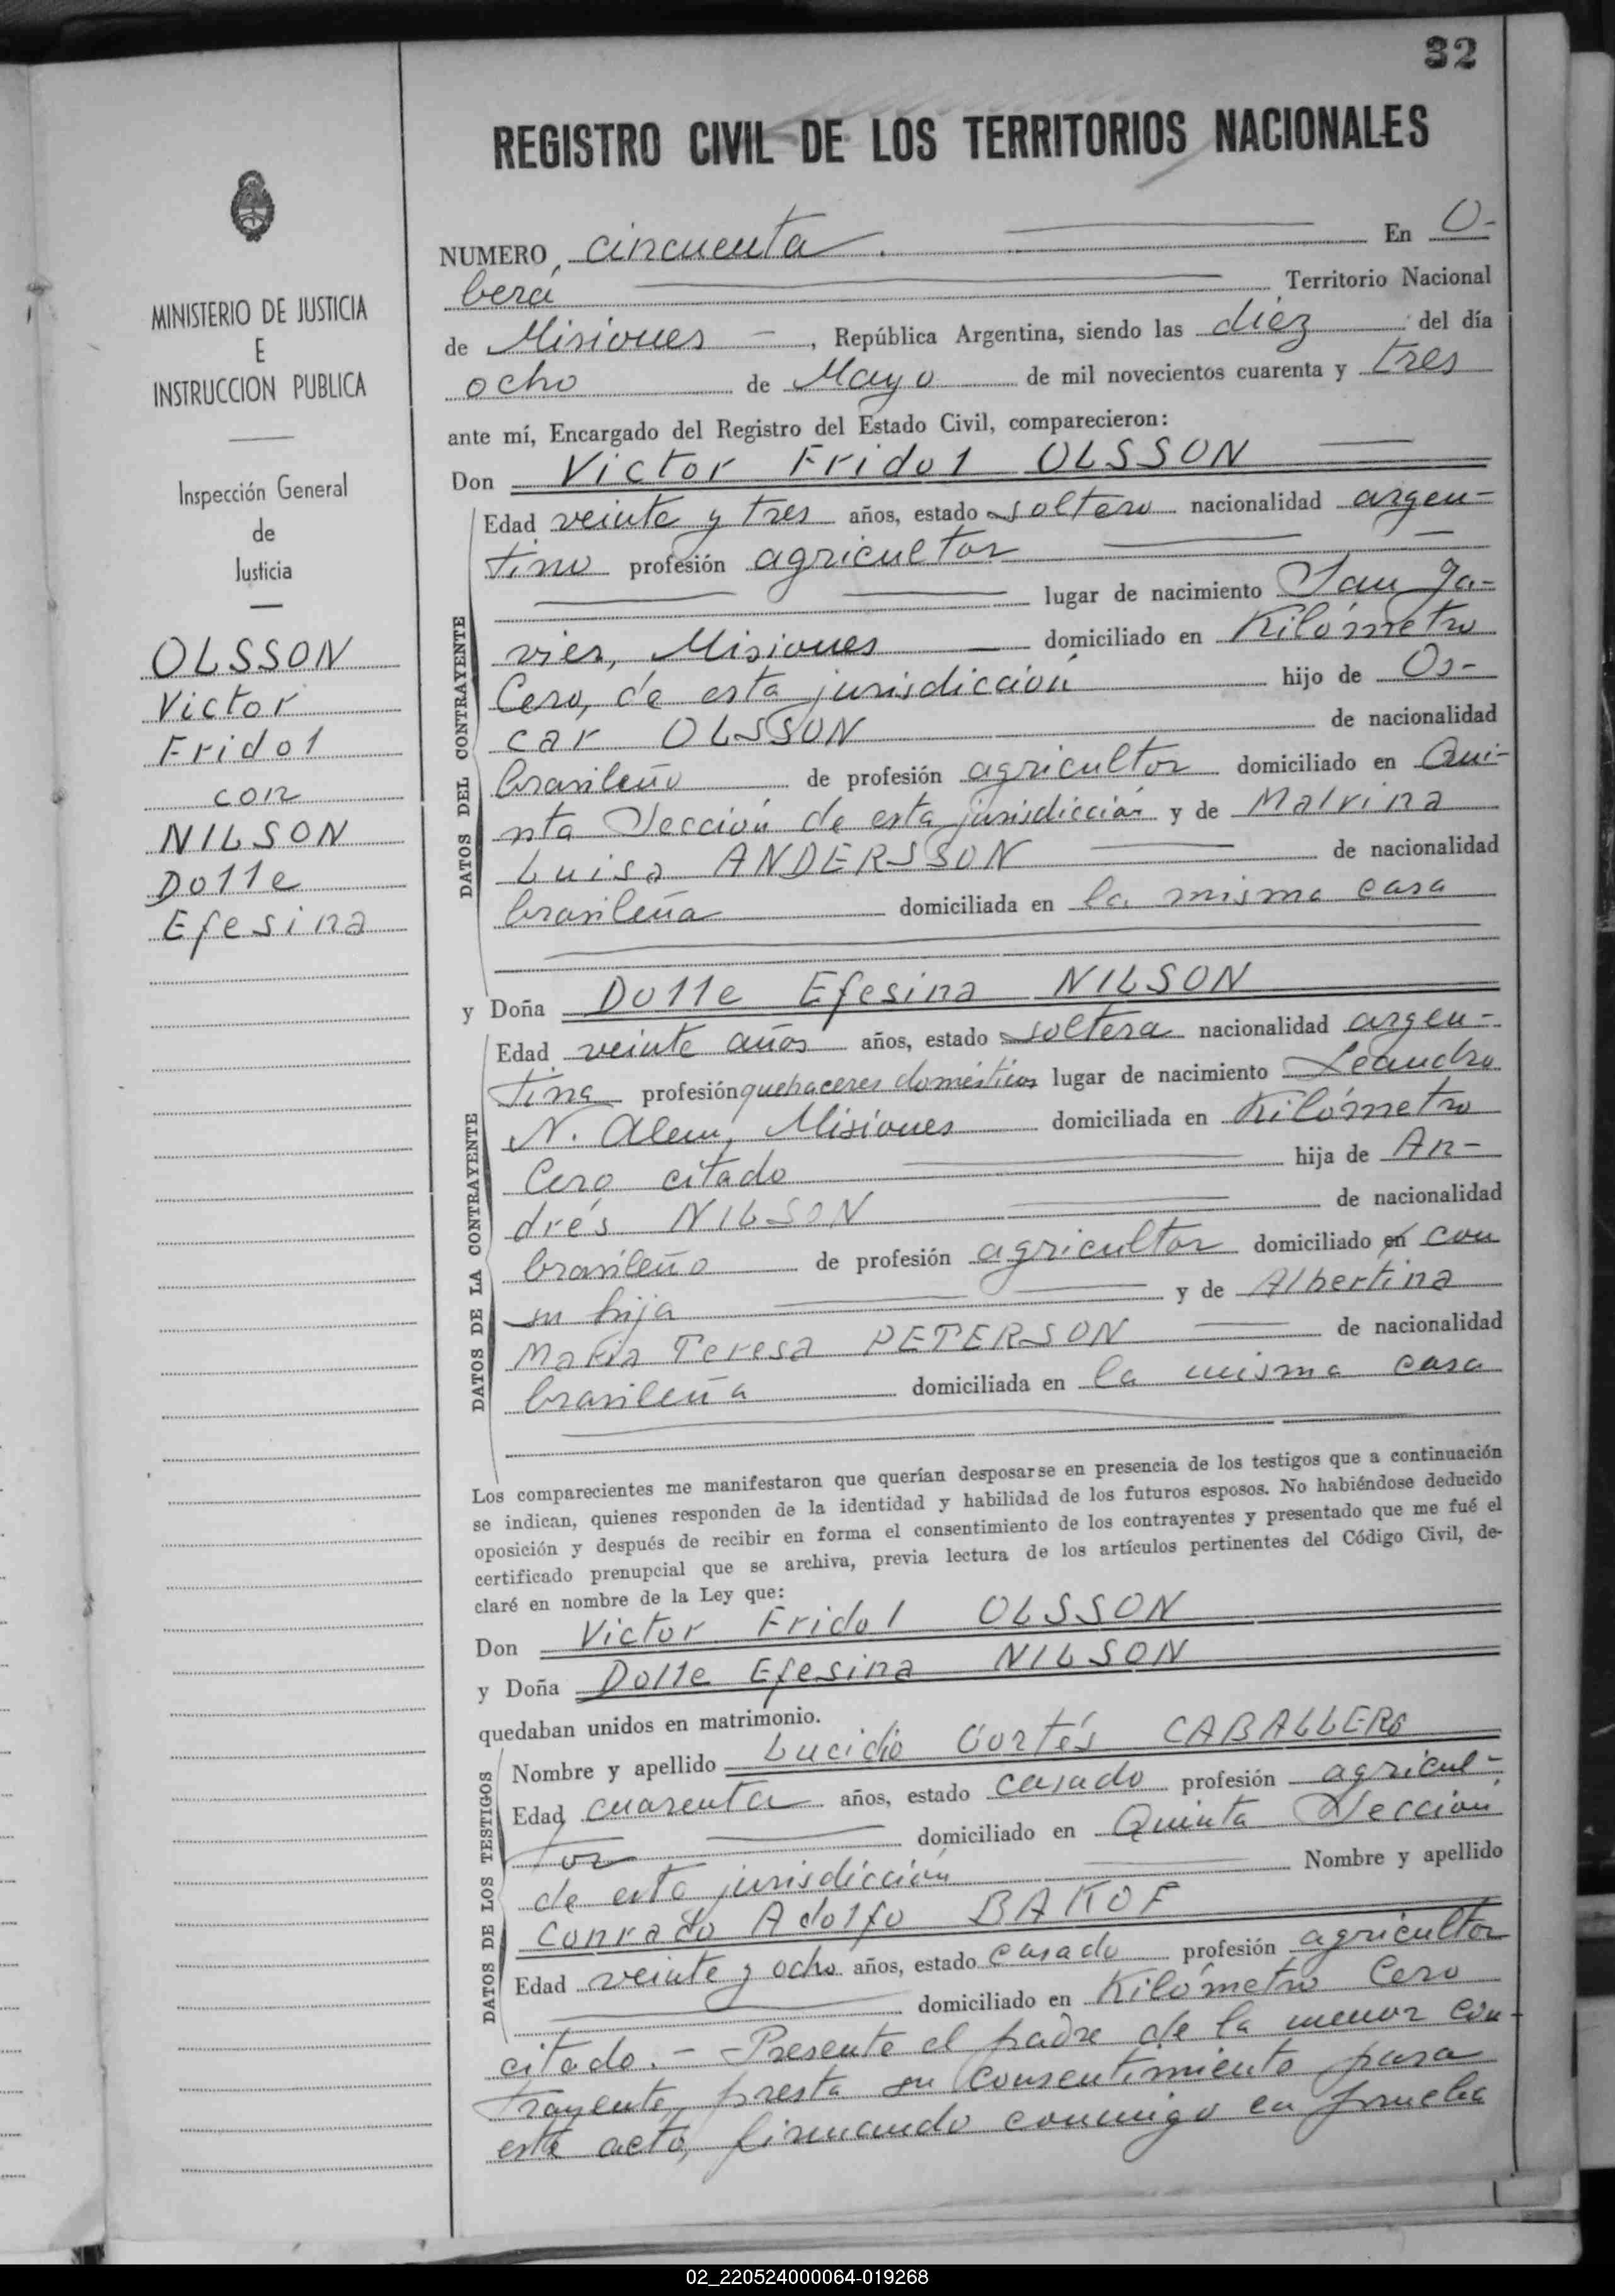 32
REGISTRO CIVIL DE LOS TERRITORIOS NACIONALES
MINISTERIO DE JUSTICIA
E
INSTRUCCION PUBLICA
Inspección General
de
Justicia
OLSSON
Victor
Fridol
con
NILSON
Dolle
Efesina
NUMERO cincuenta. En O-
berá Territorio Nacional
de Misiones — , República Argentina, siendo las diéz del día
ocho de Mayo de mil novecientos cuarenta y tres
ante mí, Encargado del Registro del Estado Civil, comparecieron:
Don Victor Fridol OLSSON
DATOS DEL CONTRAYENTE
Edad veinte y tres años, estado soltero nacionalidad argen-
tino profesión agricultor
lugar de nacimiento San Ja-
vier, Misiones — domiciliado en Kilómetro
Cero, de esta jurisdicción hijo de Os-
car OLSSON de nacionalidad
brasileño de profesión agricultor domiciliado en Qui-
nta Sección de esta jurisdicción y de Malvina
Luisa ANDERSSON de nacionalidad
brasileña domiciliada en la misma casa
y Doña Dolle Efesina NILSON
DATOS DE LA CONTRAYENTE
Edad veinte años años, estado soltera nacionalidad argen-
tina profesión quehaceres domésticos lugar de nacimiento Leandro
N. Alem, Misiones domiciliada en Kilómetro
Cero citado hija de An-
drés NILSON de nacionalidad
brasileño de profesión agricultor domiciliado en con
su hija y de Albertina
Maria Teresa PETERSON de nacionalidad
brasileña domiciliada en la misma casa
Los comparecientes me manifestaron que querían desposarse en presencia de los testigos que a continuación
se indican, quienes responden de la identidad y habilidad de los futuros esposos. No habiéndose deducido
oposición y después de recibir en forma el consentimiento de los contrayentes y presentado que me fué el
certificado prenupcial que se archiva, previa lectura de los artículos pertinentes del Código Civil, de-
claré en nombre de la Ley que:
Don Victor Fridol OLSSON
y Doña Dolle Efesina NILSON
quedaban unidos en matrimonio.
DATOS DE LOS TESTIGOS
Nombre y apellido Lucidio Cortés CABALLERO
Edad cuarenta años, estado casado profesión agricul-
tor domiciliado en Quinta Sección
de esta jurisdicción Nombre y apellido
Conrado Adolfo BAKOF
Edad veinte y ocho años, estado casado profesión agricultor
domiciliado en Kilómetro Cero
citado. — Presente el padre de la menor con-
trayente, presta su consentimiento para
este acto, firmando conmigo en prueba
02_220524000064-019268